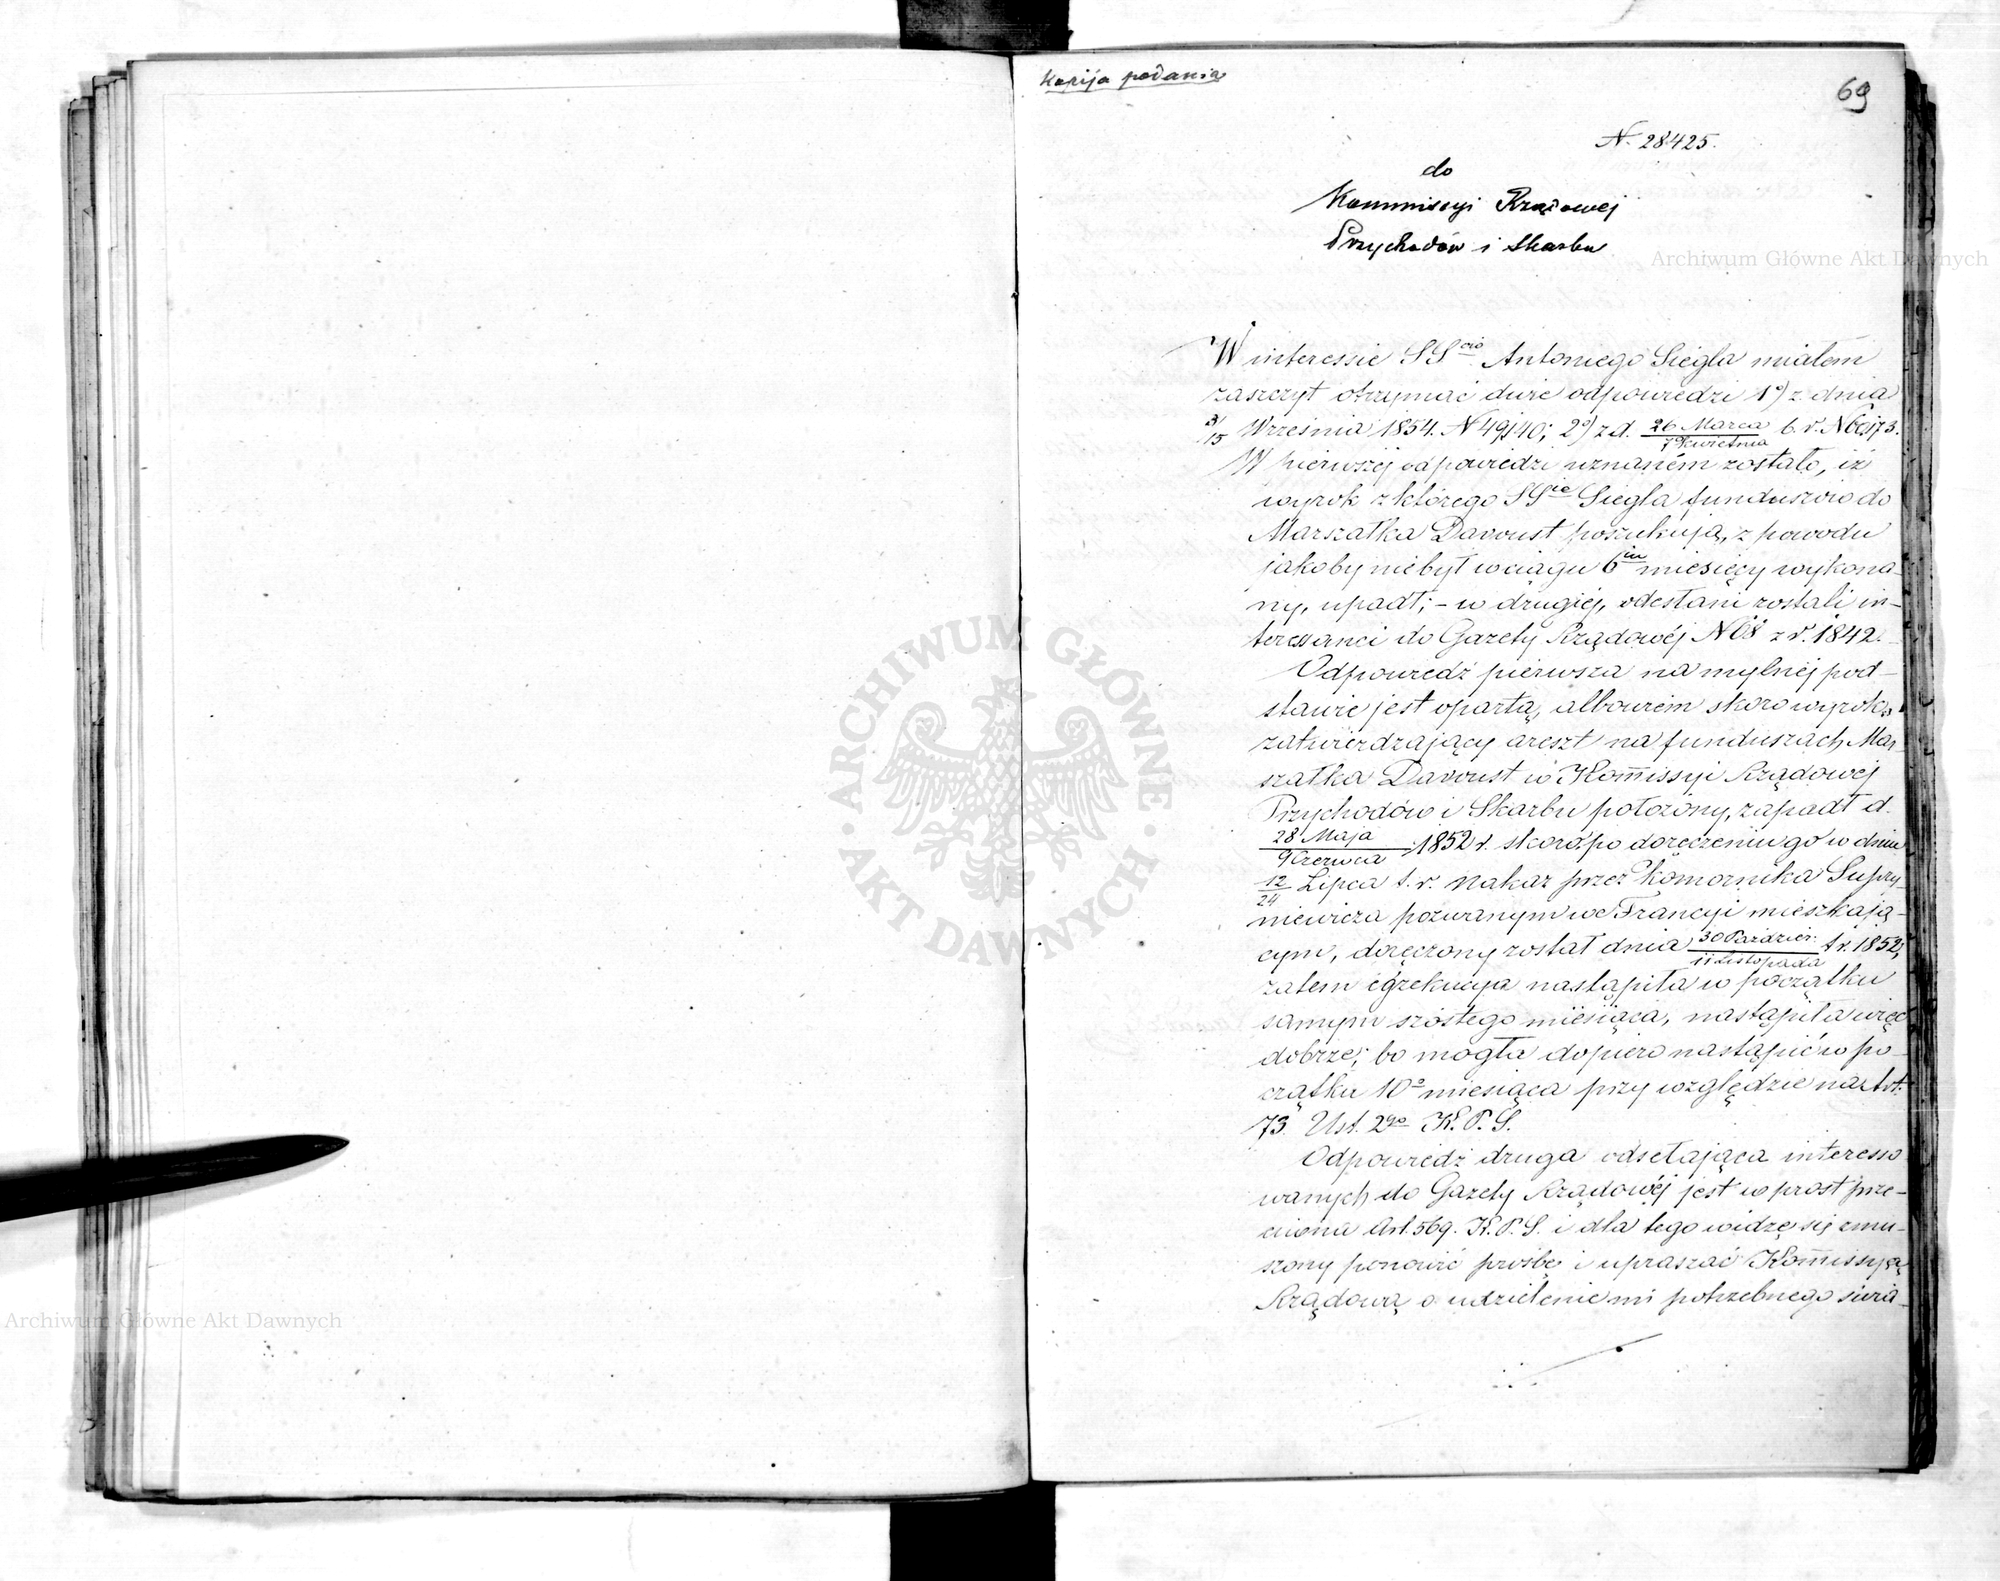 Kopija podania
69
N. 28425.
do
Kommissyi Rządowej
Przychodów i Skarbu
W interessie SSrów Antoniego Siegla miałem
zaszczyt otrzymać dwie odpowiedzi 1o) z dnia
3/15 Września 1854. N 49140; 2o) z d. 26 Marca / 7 Kwietnia b. r. N
W pierwszej odpowiedzi uznaném zostało, iż
wyrok z którego SSie Siegla funduszów do
Marszałka Davoust poszukują, z powodu
jakoby niebył w ciągu 6iu miesięcy wykona-
ny, upadł; – w drugiéj, odesłani zostali in-
teressanci do Gazety Rządowéj N 68 z r. 1842.
Odpowiedź pierwsza na mylnéj pod-
stawie jest opartą, albowiem skoro wyrok
zatwierdzający areszt na funduszach Mar
szałka Davoust w Kom̄issyi Rządowej
Przychodów i Skarbu położony, zapadł d.
28 Maja / 9 Czerwca 1852 r. skoro po doręczeniu go w dniu
12/24 Lipca t. r. nakaz przez Komornika Supry-
niewicza pozwanym we Francyi mieszkają-
cym, doręczony został dnia 30 Paździer. / 11 Listopada t. r. 1852,
zatem egzekucya nastąpiła w początku
samym szóstego miesiąca, nastąpiła więc
dobrze; bo mogła dopiero nastąpić w po-
czątku 10o miesiąca przy względzie na Art.
73. Ust. 2go K. P. S.
Odpowiedź druga odsełająca interesso
wanych do Gazety Rządowéj jest w prost prze-
ciwna Art. 569. K. P. S. i dla tego widzę się zmu-
szony ponowić prośbę i upraszać Kom̄issyją
Rządową o udzielenie mi potrzebnego świa-
Archiwum Główne Akt Dawnych
Archiwum Główne Akt Dawnych
ARCHIWUM GŁÓWNE
AKT DAWNYCH